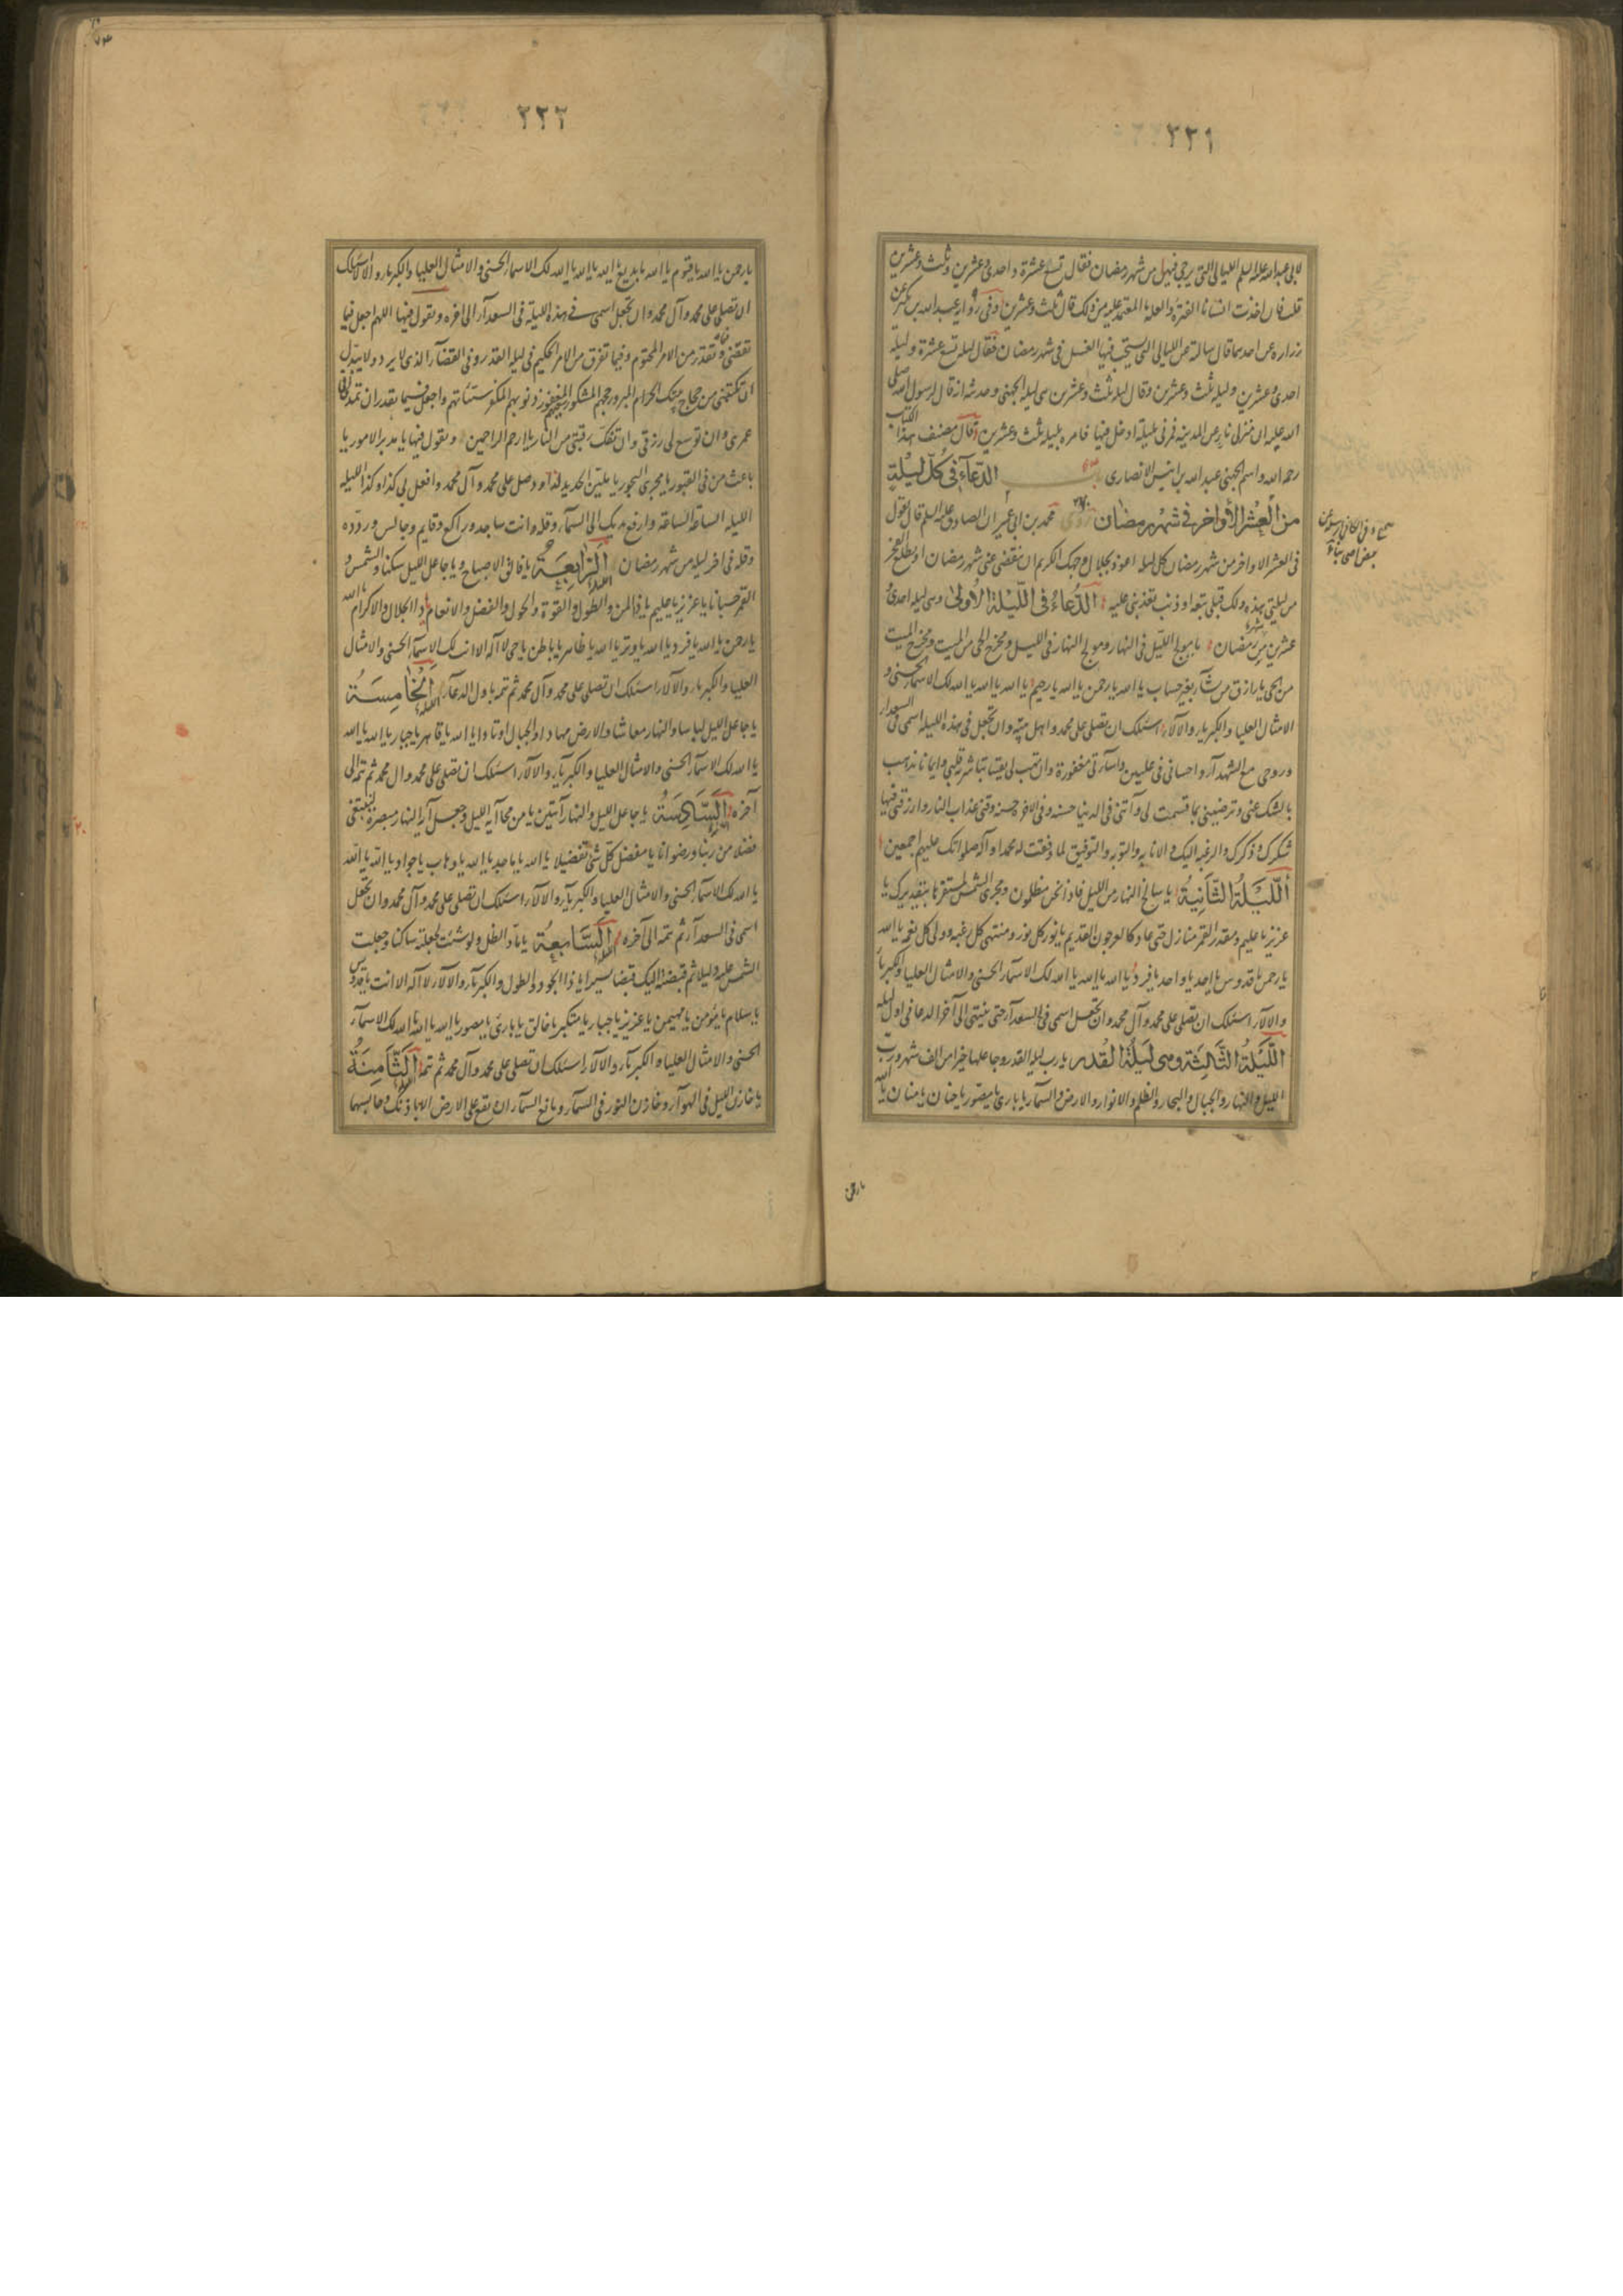 ٢٢١
لابی عبدالله علیه السلم اللیالی التی یرجی فیهن من شهر رمضان فقال تسع عشرة و احدی و عشرین و ثلث و عشرین
قلت فان اخذت انسانا الفترة او العلة ما المعتمد علیه من ذلک قال ثلث و عشرین وفی روایة عبدالله بن بکیر عن
زراره عن احدهما قال سالته عن اللیالی التی یستحب فیها الغسل فی شهر رمضان فقال لیله تسع عشرة و لیله
احدی و عشرین و لیله ثلث و عشرین و قال لیله ثلث و عشرین هی لیله الجهنی و حدیثه انه قال لرسول الله صلی
الله علیه ان منزلی نای عن المدینه فمرنی بلیلة ادخل فیها فامره بلیله ثلث و عشرین قال مصنف هذا الکتاب
رحمه الله و اسم الجهنی عبدالله بن انیس الانصاری باب الدّعآء فی کلّ لیلة
من العشر الأواخر فی شهر رمضان روی محمد بن ابی عمیر ان الصادق علیه السلم قال تقول
صح و فی الکافی
فی العشر الاواخر من شهر رمضان کل لیله اعوذ بجلال وجهک الکریم ان ینقضی عنی شهر رمضان او یطلع الفجر
من لیلتی هذه ولک قبلی تبعه او ذنب تعذبنی علیه الدّعاء فی اللّیلة الأولی وهی لیله احدی و
عشرین من شهر رمضان یا مولج اللیل فی النهار و مولج النهار فی اللیل و مخرج الحی من المیت و مخرج المیت
من الحی یا رازق من یشآء بغیر حساب یا الله یا رحمن یا الله یا رحیم یا الله یا الله یا الله لک الاسمآء الحسنی و
الامثال العلیا و الکبریاء و الآلاء اسئلک ان تصلی علی محمد و اهل بیته و ان تجعل فی هذه اللیله اسمی فی السعداء
و روحی مع الشهدآء و احسانی فی علیین و اسآءتی مغفورة و ان تهب لی یقینا تباشر به قلبی و ایمانا یذهب
بالشک عنی و ترضینی بما قسمت لی و آتنی فی الدنیا حسنه و فی الاخرة حسنه و قنی عذاب النار و ارزقنی فیها
شکرک و ذکرک و الرغبه الیک و الانابه و التوبه و التوفیق لما وفقت له محمدا و آله صلواتک علیهم اجمعین
اللّیلة الثّانیة یا سالخ النهار من اللیل فاذا نحن مظلمون و مجری الشمس لمستقرها بتقدیرک یا
عزیز یا علیم و مقدر القمر منازل حتی عاد کالعرجون القدیم یا نور کل نور و منتهی کل رغبه و ولی کل نعمه یا الله
یا رحمن یا قدوس یا احد یا واحد یا فرد یا الله یا الله یا الله لک الاسمآء الحسنی و الامثال العلیا و الکبریاء
و الآلاء اسئلک ان تصلی علی محمد و آل محمد و ان تجعل اسمی فی السعدآء حتی ینتهی الی آخر الدعا فی اول لیله
اللّیلة الثّالثة وهی لیلة القدر یا رب لیله القدر و جاعلها خیرا من الف شهر و رب
اللیل و النهار و الجبال و البحار و الظلم و الانوار و الارض و السمآء یا باری یا مصور یا حنان یا منان یا الله
یا رحمن
٢٢٢
یا رحمن یا الله یا قیوم یا الله یا بدیع یا الله یا الله یا الله لک الاسمآء الحسنی و الامثال العلیا و الکبریاء و الآلاء اسئلک
ان تصلی علی محمد و آل محمد و ان تجعل اسمی فی هذه اللیلة فی السعدآء الی اخره و تقول فیها اللهم اجعل فیما
تقضی و تقدر من الامر المحتوم و فیما تفرق من الامر الحکیم فی لیلة القدر و فی القضآء الذی لا یرد و لا یبدل
ان تکتبنی من حجاج بیتک الحرام المبرور حجهم المشکور سعیهم المغفور ذنوبهم المکفر سیئاتهم و اجعل فیما تقدر ان تمد لی فی
عمری و ان توسع لی رزقی و ان تفک رقبتی من النار یا ارحم الراحمین و تقول فیها یا مدبر الامور یا
باعث من فی القبور یا مجری البحور یا ملین الحدید لداود صل علی محمد و آل محمد و افعل بی کذا و کذا اللیله
اللیله الساعة الساعة و ارفع یدیک الی السمآء و قله و انت ساجد و راکع و قایم و جالس و ردده
و قله فی اخر لیله من شهر رمضان اللیلة الرّابعة یا فالق الاصباح و یا جاعل اللیل سکنا و الشمس و
القمر حسبانا یا عزیز یا علیم یا ذا المن و الطول و القوة و الحول و الفضل و الانعام یا ذا الجلال و الاکرام یا الله
یا رحمن یا الله یا فرد یا الله یا وتر یا الله یا ظاهر یا باطن یا حی لا اله الا انت لک الاسمآء الحسنی و الامثال
العلیا و الکبریاء و الآلاء اسئلک ان تصلی علی محمد و آل محمد ثم تمه باول الدعآء اللیلة الخامسة
یا جاعل اللیل لباسا و النهار معاشا و الارض مهادا و الجبال اوتادا یا الله یا قاهر یا جبار یا الله یا الله
یا الله لک الاسمآء الحسنی و الامثال العلیا و الکبریآء و الآلاء اسئلک ان تصلی علی محمد و آل محمد ثم تمه الی
آخره اللیلة السّادسة یا جاعل اللیل و النهار آیتین یا من محا آیه اللیل و جعل آیه النهار مبصرة لنبتغی
فضلا من ربنا و رضوانا یا مفصل کل شئ تفصیلا یا الله یا ماجد یا الله یا وهاب یا جواد یا الله یا الله
یا الله لک الاسمآء الحسنی و الامثال العلیا و الکبریآء و الآلاء اسئلک ان تصلی علی محمد و آل محمد و ان تجعل
اسمی فی السعدآء ثم تمه الی آخره اللیلة السّابعة یا مآدّ الظل و لو شئت لجعلته ساکنا و جعلت
الشمس علیه دلیلا ثم قبضته الیک قبضا یسیرا یا ذا الجود و الطول و الکبریآء و الآلاء لا اله الا انت یا قدوس
یا سلام یا مؤمن یا مهیمن یا عزیز یا جبار یا متکبر یا خالق یا باری یا مصور یا الله یا الله یا الله لک الاسمآء
الحسنی و الامثال العلیا و الکبریآء و الآلاء اسئلک ان تصلی علی محمد و آل محمد ثم تمه اللیلة الثّامنة
یا خازن اللیل فی الهوآء و خازن النور فی السمآء و مانع السمآء ان تقع علی الارض الا باذنک و حابسهما